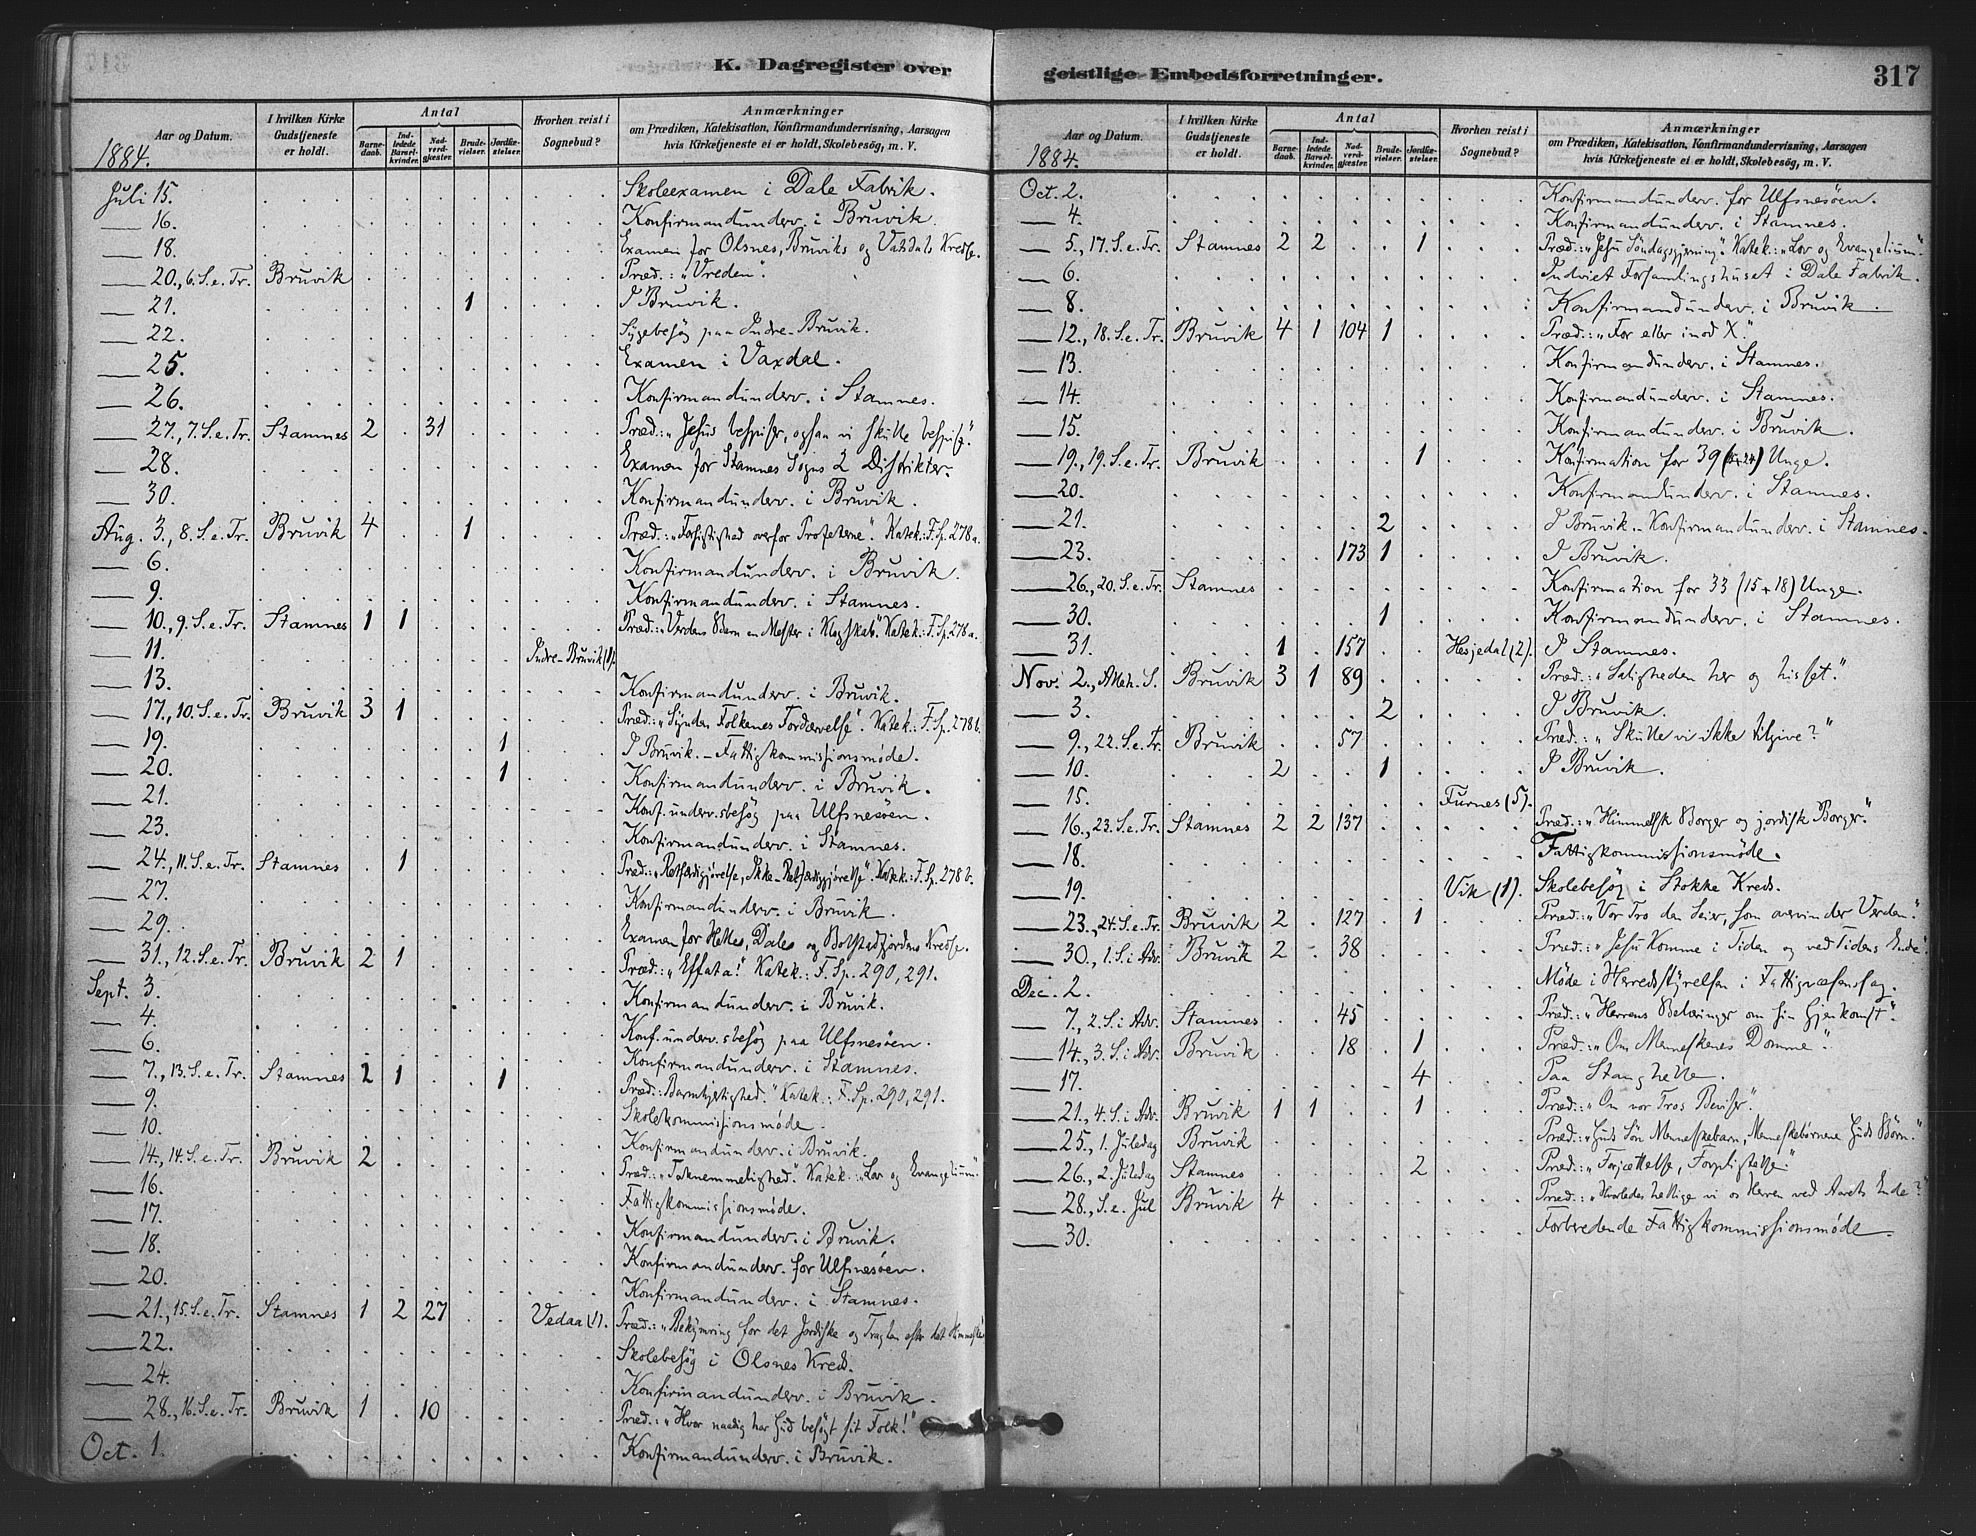 K. Dagregister over
Aar og Datum.
I hvilken Kirke Gudstjeneste er holdt.
Antal
Barnedaab.
Indledede Barselkvinder.
Nadverdgjester.
Brudevielser.
Jordfæstelser.
Hvorhen reist i Sognebud?
Anmærkninger
om Prædiken, Katekisation, Konfirmandundervisning, Aarsagen
hvis Kirketjeneste ei er holdt, Skolebesøg, m. V.
1884.
Juli 15. Skoleexamen i Dale Fabrik.
16. Konfirmandunderv. i Bruvik.
18. Examen for Olsnes, Bruviks og Vaxdals Kredse.
20., 6. S. e. Tr. Bruvik Præd.: "Vreden".
21. 1 I Bruvik.
22. Sygebesøg paa Indre-Bruvik.
25. Examen i Vaxdal.
26. Konfirmandunderv. i Stamnes.
27., 7. S. e. Tr. Stamnes 2 31 Præd.: "Jesus bespiser, ogsaa vi skulle bespise".
28. Examen for Stamnes Sogns 2 Distrikter.
30. Konfirmandunderv. i Bruvik.
Aug. 3., 8. S. e. Tr. Bruvik 4 1 Præd.: "Forsigtighed overfor Profeterne". Katek.: F. Sp. 278 a.
6. Konfirmandunderv. i Bruvik.
9. Konfirmandunderv. i Stamnes.
10., 9. S. e. Tr. Stamnes 1 1 Præd.: "Verdens Børn en Mester i Klogskab". Katek.: F. Sp. 278 a.
11. Indre-Bruvik (1).
13. Konfirmandunderv. i Bruvik.
17., 10. S. e. Tr. Bruvik 3 1 Præd.: "Synden Folkenes Fordærvelse". Katek.: F. Sp. 278 b.
19. 1 I Bruvik. - Fattigkommissionsmøde.
20. 1 Konfirmandunderv. i Bruvik.
21. Konf.underv.sbesøg paa Ulfsnesøen.
23. Konfirmandunderv. i Stamnes.
24., 11. S. e. Tr. Stamnes 1 Præd.: "Retfærdiggjørelse, Ikke-Retfærdiggjørelse". Katek.: F. Sp. 278 b.
27. Konfirmandunderv. i Bruvik.
29. Examen for Helles, Dales og Bolstadfjordens Kredse.
31., 12. S. e. Tr. Bruvik 2 1 Præd.: "Effata!" Katek.: F. Sp. 290, 291.
Sept. 3. Konfirmandunderv. i Bruvik.
4. Konf.underv.sbesøg paa Ulfsnesøen.
6. Konfirmandunderv. i Stamnes.
7., 13. S. e. Tr. Stamnes 2 1 1 Præd.: Barmhjertighed." Katek.: F. Sp. 290, 291.
9. Skolekommissionsmøde.
10. Konfirmandunderv. i Bruvik.
14., 14. S. e. Tr. Bruvik 2 Præd.: "Taknemmelighed". Katek.: "Lov og Evangelium"
16. Fattigkommissionsmøde.
17. Konfirmandunderv. i Bruvik.
18. Konfirmandunderv. for Ulfsnesøen.
20. Konfirmandunderv. i Stamnes.
21., 15. S. e. Tr. Stamnes 1 2 27 Vedaa (1). Præd.: "Bekymring for det Jordiske og Tragten efter det Himmelske
22. Skolebesøg i Olsnes Kreds.
24. Konfirmandunderv. i Bruvik.
28., 16. S. e. Tr. Bruvik 1 10 Præd.: "Hvor naadig har Gud besøgt sit Folk!"
Oct. 1. Konfirmandunderv. i Bruvik.
geistlige Embedsforretninger.
317
Aar og Datum.
I hvilken Kirke Gudstjeneste er holdt.
Antal
Barnedaab.
Indledede Barselkvinder.
Nadverdgjester.
Brudevielser.
Jordfæstelser.
Hvorhen reist i Sognebud?
Anmærkninger
om Prædiken, Katekisation, Konfirmandundervisning, Aarsagen
hvis Kirketjeneste ei er holdt, Skolebesøg, m. V.
1884.
Oct. 2. Konfirmandunderv. for Ulfsnesøen.
4. Konfirmandunderv. i Stamnes.
5., 17. S. e. Tr. Stamnes 2 2 1 Præd.: "Jesu Søndagsgjerning". Katek.: "Lov og Evangelium".
6. Indviet Forsamlingshuset i Dale Fabrik.
8. Konfirmandunderv. i Bruvik.
12., 18. S. e. Tr. Bruvik 4 1 104 1 Præd.: "For eller imod X."
13. Konfirmandunderv. i Stamnes.
14. Konfirmandunderv. i Stamnes.
15. Konfirmandunderv. i Bruvik.
19., 19. S. e. Tr. Bruvik 1 Konfirmation for 39 Unge.
20. Konfirmandunderv. i Stamnes.
21. 2 I Bruvik. Konfirmandunderv. i Stamnes.
23. 173 1 I Bruvik.
26., 20. S. e. Tr. Stamnes Konfirmation for 33 (15+18) Unge.
30. 1 Konfirmandunderv. i Stamnes.
31. 1 157 Hesjedal (2). I Stamnes.
Nov. 2., Alleh. S. Bruvik 3 1 89 Præd.: "Saligheden her og hisset."
3. 2 I Bruvik.
9., 22. S. e. Tr. Bruvik 57 Præd.: "Skulle vi ikke tilgive?"
10. 2 1 I Bruvik.
15. Furnes (5).
16., 23. S. e. Tr. Stamnes 2 2 137 Præd.: "Himmelsk Borger og jordisk Borger."
18. Fattigkommissionsmøde.
19. Vik (1). Skolebesøg i Stokke Kreds.
23., 24. S. e. Tr. Bruvik 2 127 1 Præd.: "Vor Tro den Seier, som overvinder Verden."
30., 1. S. i Adv. Bruvik 2 38 Præd.: "Jesu Komme i Tiden og ved Tidens Ende".
Dec. 2. Møde i Herredsstyrelsen i Fattigvæsenssag.
7., 2. S. i Adv. Stamnes 45 Præd.: "Herrens Belæringer om sin Gjenkomst".
14., 3. S. i Adv. Bruvik 18 1 Præd.: "Om Menneskenes Domme".
17. 4 Paa Stanghelle.
21., 4. S. i Adv. Bruvik 1 1 1 Præd.: "Om vor Tros Beviser".
25., 1. Juledag Bruvik Præd.: "Guds Søn Menneskebarn, Menneskebørnene Guds Børn."
26., 2. Juledag Stamnes 2 Præd.: "Forjættelse, Forpligtelse"
28., S. e. Jul Bruvik 4 Præd.: "Hvorledes hellige vi os Herren ved Aarets Ende?"
30. Forberedende Fattigkommissionsmøde.